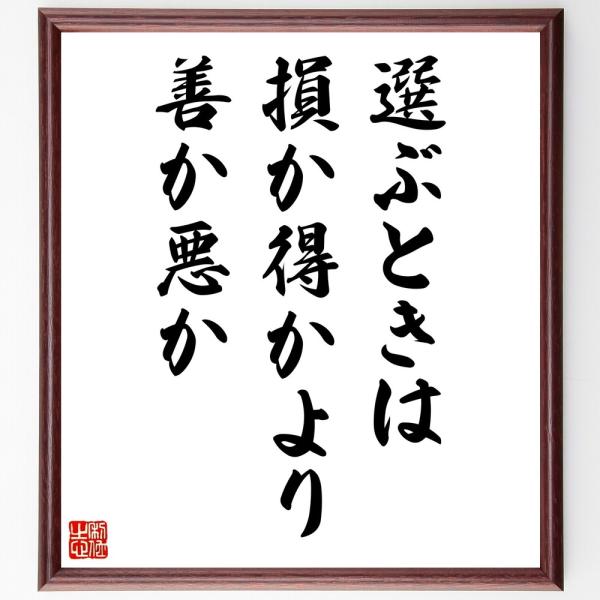 選ぶときは
損か得かより
善か悪か